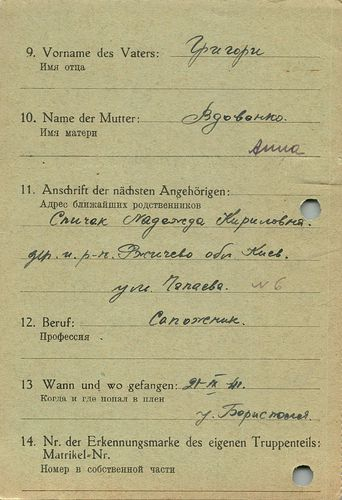 9. Vorname des Vaters: Григори
Имя отца
10. Name der Mutter: Вдованко.
Имя матери
Анна
11. Anschrift der nächsten Angehörigen:
Адрес ближайших родственников
Спичак Надежда Кириловна.
дер. и. р-н. Ржичево обл. Киев.
ул. Чапаева. № 6
12. Beruf: Сапожник.
Профессия
13 Wann und wo gefangen: 21-IX 41.
Когда и где попал в плен
у. Борисполя.
14. Nr. der Erkennungsmarke des eigenen Truppenteils:
Matrikel-Nr.
Номер в собственной части